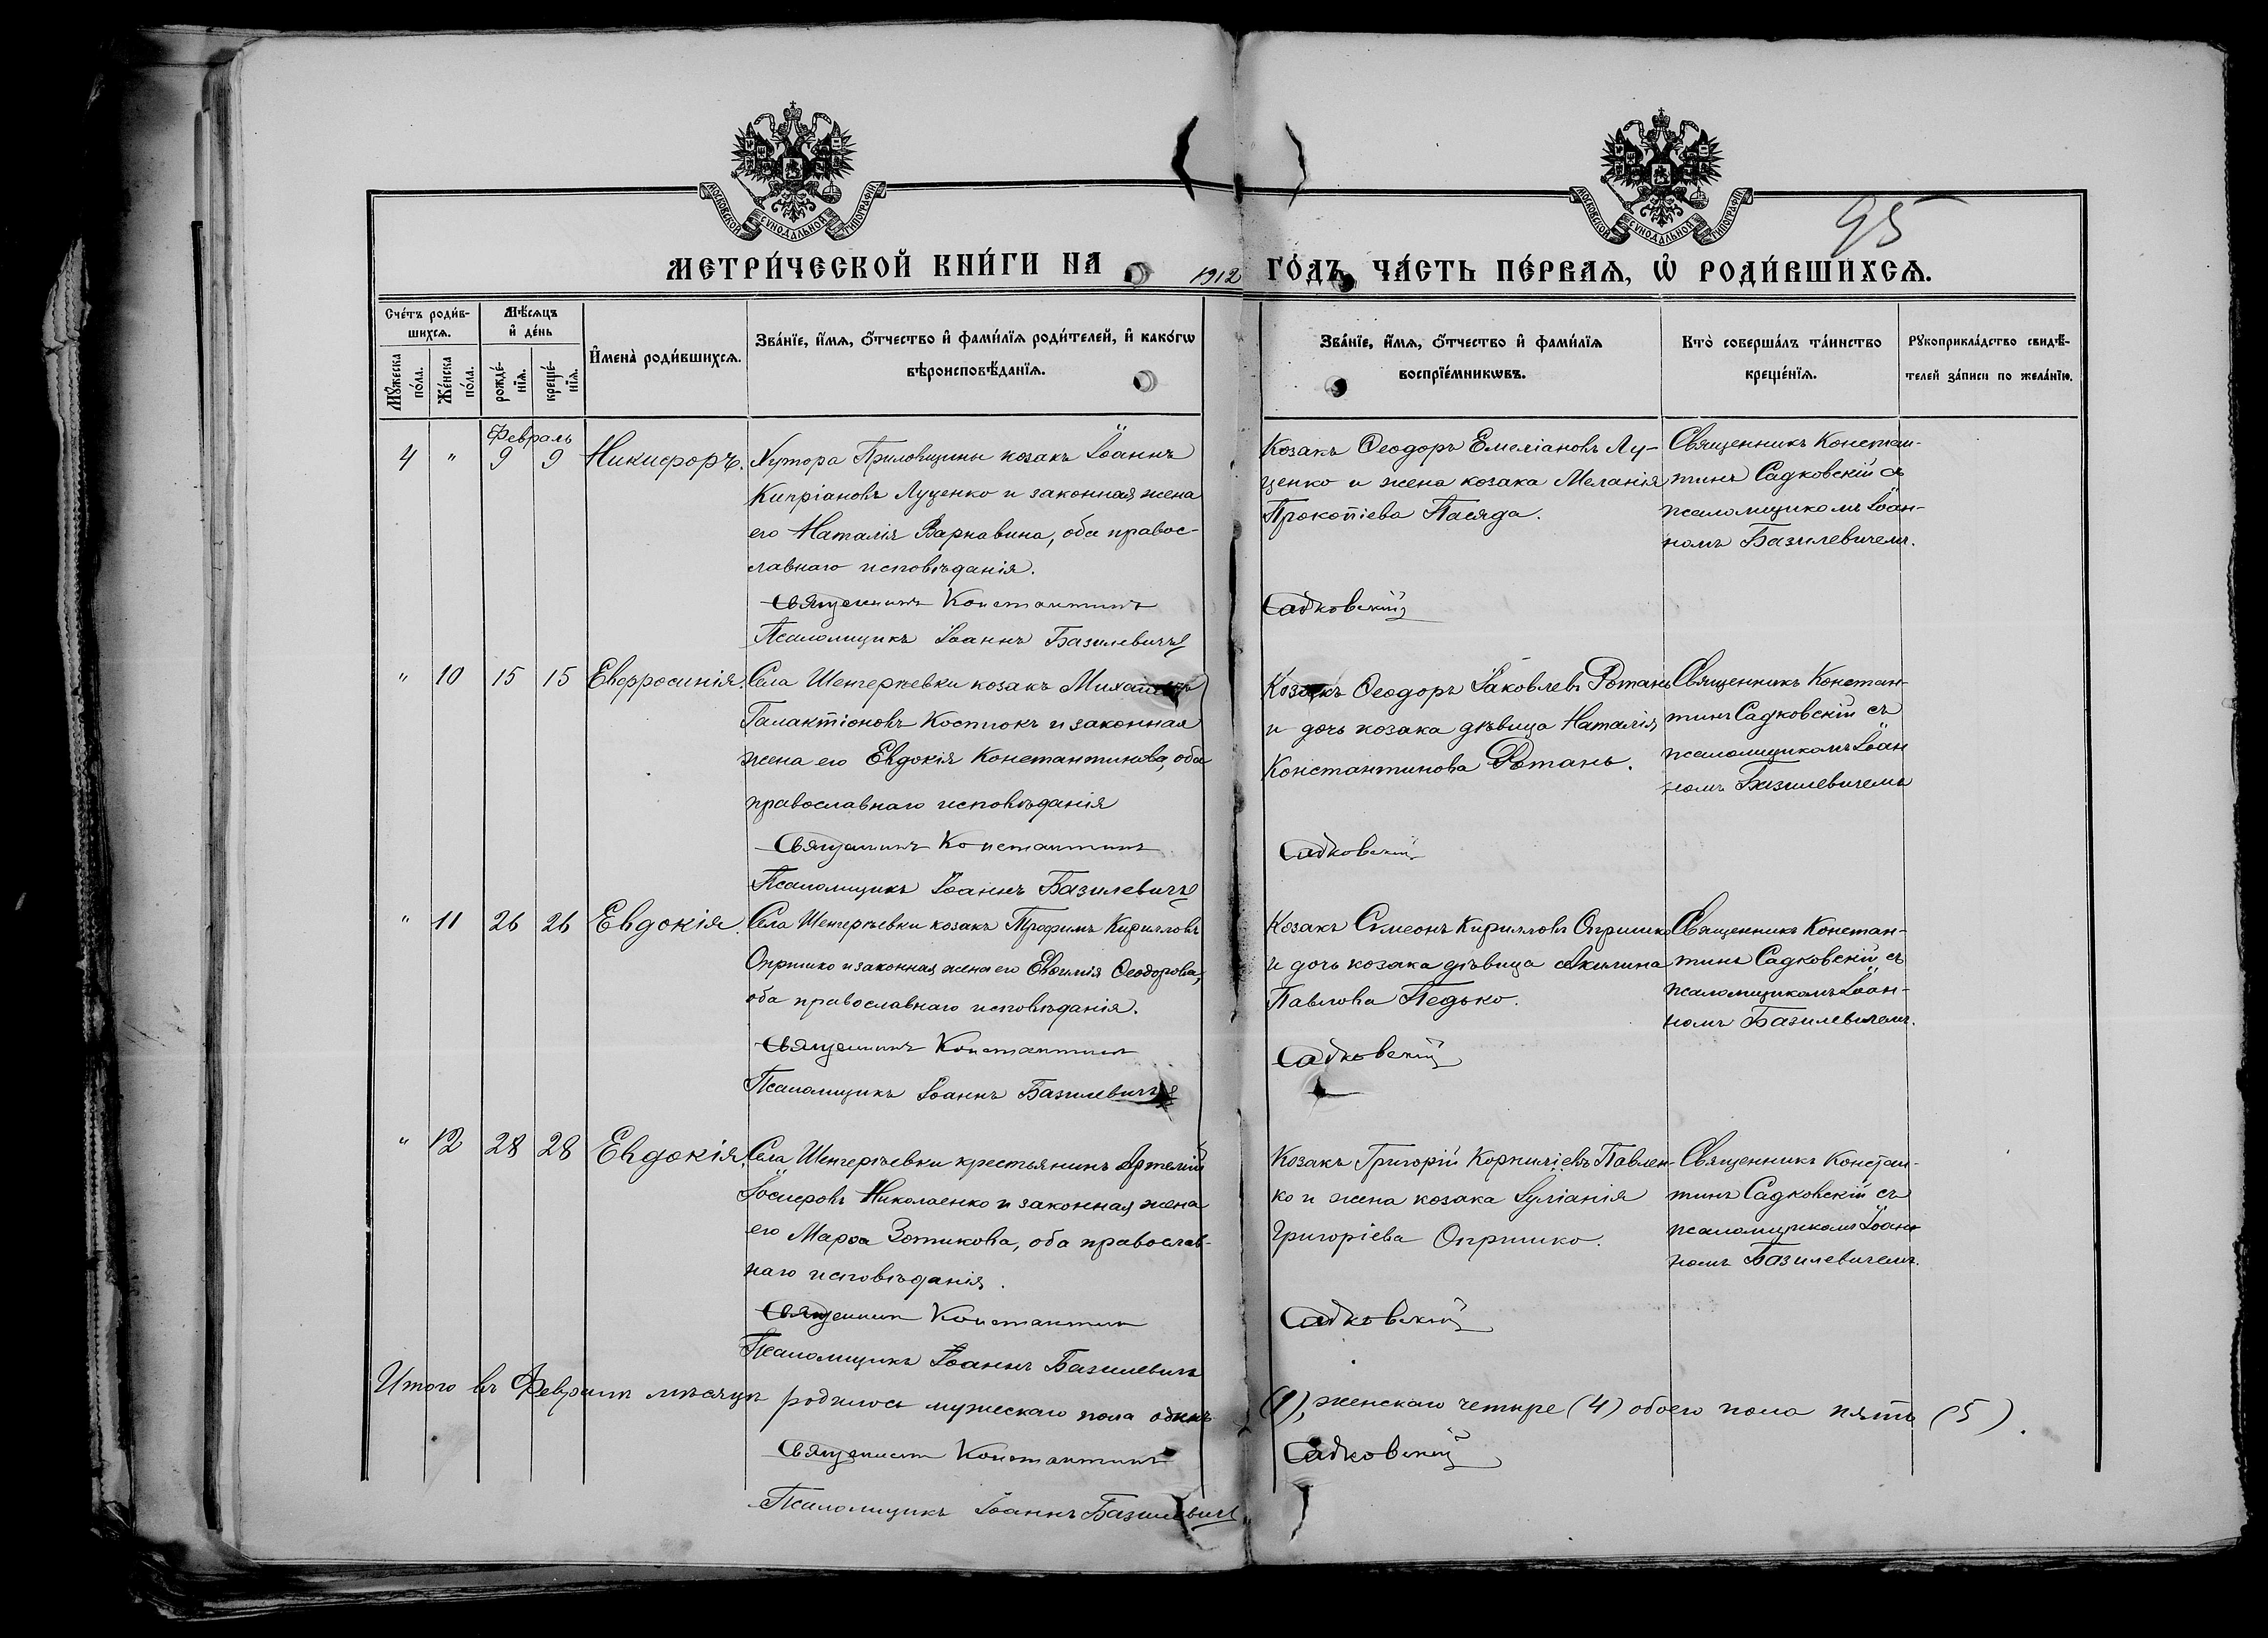 МОСКОВСКОЙ СѴНОДАЛЬНОЙ ТИПОГРАФІИ
МОСКОВСКОЙ СѴНОДАЛЬНОЙ ТИПОГРАФІИ
95
МЕТРИ́ЧЕСКОЙ КНИ́ГИ НА 1912 ГО́ДЪ, ЧА́СТЬ ПЕ́РВАѦ, Ѡ҆ РОДИ́ВШИХСѦ.
Сче́тъ роди́в-
шихсѧ.
Мѣ́сѧцъ
и҆ де́нь
Мꙋ́жеска по́ла.
Же́нска по́ла.
рожде́-
нїѧ.
креще́-
нїѧ.
И҆мена̀ роди́вшихсѧ.
Зва́нїе, и҆́мѧ, ѻ҆́тчество и҆ фами́лїѧ роди́телей, и҆ како́гѡ
вѣроисповѣ́данїѧ.
Зва́нїе, и҆́мѧ, ѻ҆́тчество и҆ фами́лїѧ
воспрїе́мникѡвъ.
Кто̀ соверша́лъ та́инство
креще́нїѧ.
Рꙋкоприкла́дство свидѣ́-
телей за́писи по жела́нїю.
Февраль
4 " 9 9 Никифоръ. Хутора Приловщины козакъ Іоаннъ
Кипріановъ Луценко и законная жена
его Наталія Варнавина, оба правос-
лавнаго исповѣданія.
Священникъ Константинъ
Псаломщикъ Іоаннъ Базилевичъ
Козакъ Ѳеодоръ Емеліановъ Лу-
ценко и жена козака Меланія
Прокопіева Пасяда.
Садковскій
Священникъ Констан-
тинъ Садковскій съ
псаломщикомъ Іоан-
номъ Базилевичемъ.
" 10 15 15 Евфросинія. Села Шенгерѣевки козакъ Михаилъ
Галактіоновъ Костюкъ и законная
жена его Евдокія Константинова, оба
православнаго исповѣданія
Священникъ Константинъ
Псаломщикъ Іоаннъ Базилевичъ
Козакъ Ѳеодоръ Іаковлевъ Ротань
и дочь козака дѣвица Наталія
Константинова Ротань.
Садковскій
Священникъ Констан-
тинъ Садковскій съ
псаломщикомъ Іоан
номъ Базилевичемъ
" 11 26 26 Евдокія. Села Шенгерѣевки козакъ Трофимъ Кирилловъ
Опришко и законная жена его Евфимія Ѳеодорова,
оба православнаго исповѣданія.
Священникъ Константинъ
Псаломщикъ Іоаннъ Базилевичъ
Козакъ Симеонъ Кирилловъ Опришко
и дочь козака дѣвица Акилина
Павлова Педько.
Садковскій
Священникъ Констан-
тинъ Садковскій съ
псаломщикомъ Іоан-
номъ Базилевичемъ.
" 12 28 28 Евдокія. Села Шенгерѣевки крестьянинъ Артемій
Іосифовъ Николаенко и законная жена
его Марѳа Зотикова, оба православ-
наго исповѣданія.
Священникъ Константинъ
Псаломщикъ Іоаннъ Базилевичъ
Козакъ Григорій Корниліевъ Павлен-
ко и жена козака Іуліанія
Григоріева Опришко.
Садковскій
Священникъ Констан-
тинъ Садковскій съ
псаломщикомъ Іоан
номъ Базилевичемъ.
Итого въ Февралѣ мѣсяцѣ родилось мужескаго пола одинъ (1), женскаго четыре (4) обоего пола пять (5).
Священникъ Константинъ Садковскій
Псаломщикъ Іоаннъ Базилевичъ